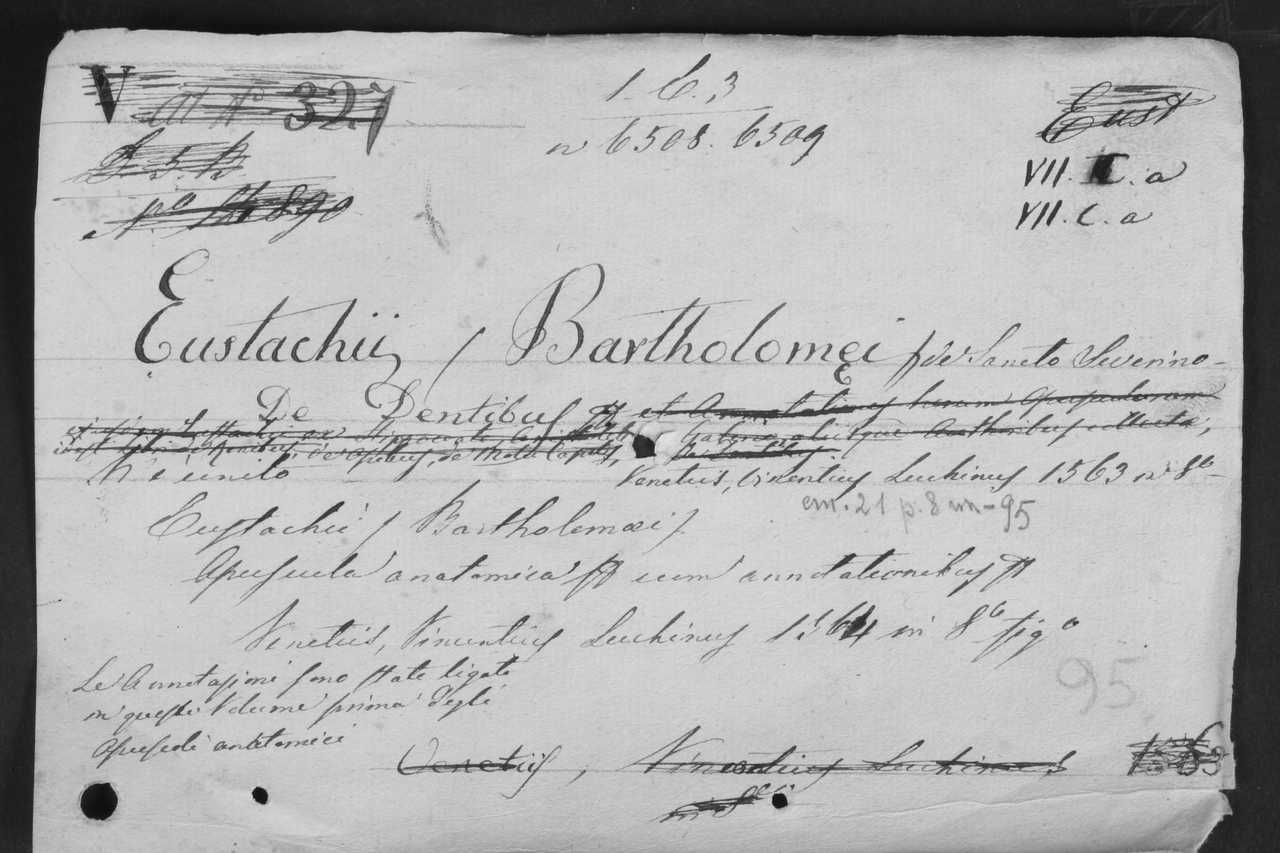 V al N° 327
1. C. 3
n 6508. 6509
Eust
VII. C. a
VII. C. a
Eustachii / Bartholomęi / de Sancto Severino
De Dentibus et Annotationes horum Opusculorum
N' è unito
Venetiis, Vincentius Luchinus 1563 in 8°
cm. 21 p. 8 nn-95
Eustachii / Bartholomæi /
Opuscula anatomica cum annotationibus
Venetiis, Vincentius Luchinus 1564 in 8° fig°
Le Annotazioni sono state ligate
in questo Volume prima degli
Opuscoli anatomici
95
Venetiis, Vincentius Luchinus 1563
in 8°